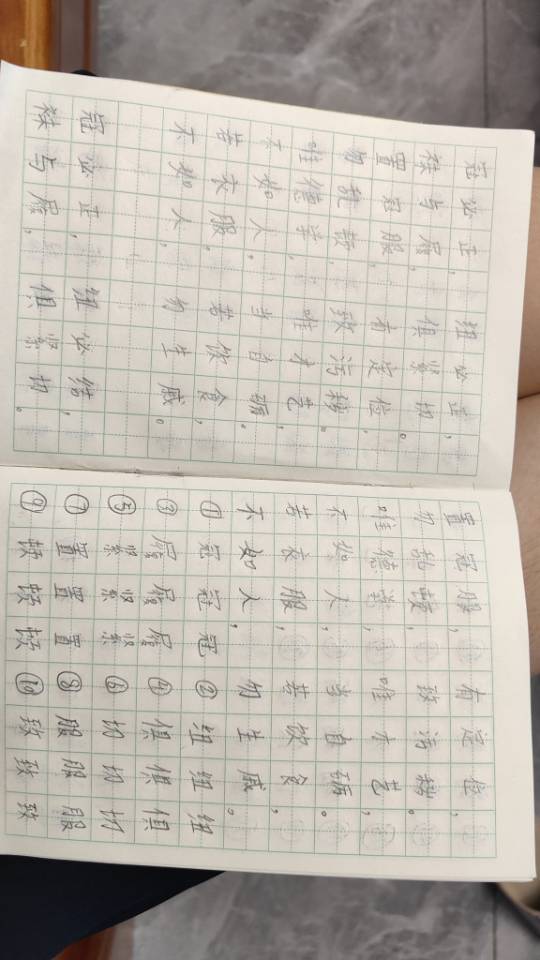 冠必正,纽必正,
袜与履,俱紧切。
置冠服,有定位,
勿乱顿,致污秽。
唯德学,唯才艺,
不如人,当自砺。
若衣服,若饮食,
不如人,勿生戚。
冠必正,纽必结,
袜与履,俱紧切。
置冠服,有定位,
勿乱顿,致污秽。
唯德学,唯才艺,
不如人,当自砺。
若衣服,若饮食,
不如人,勿生戚。
①冠冠冠②纽纽纽
③履履履④俱俱俱
⑤紧紧紧⑥切切切
⑦置置置⑧服服服
⑨顿顿顿⑩致致致